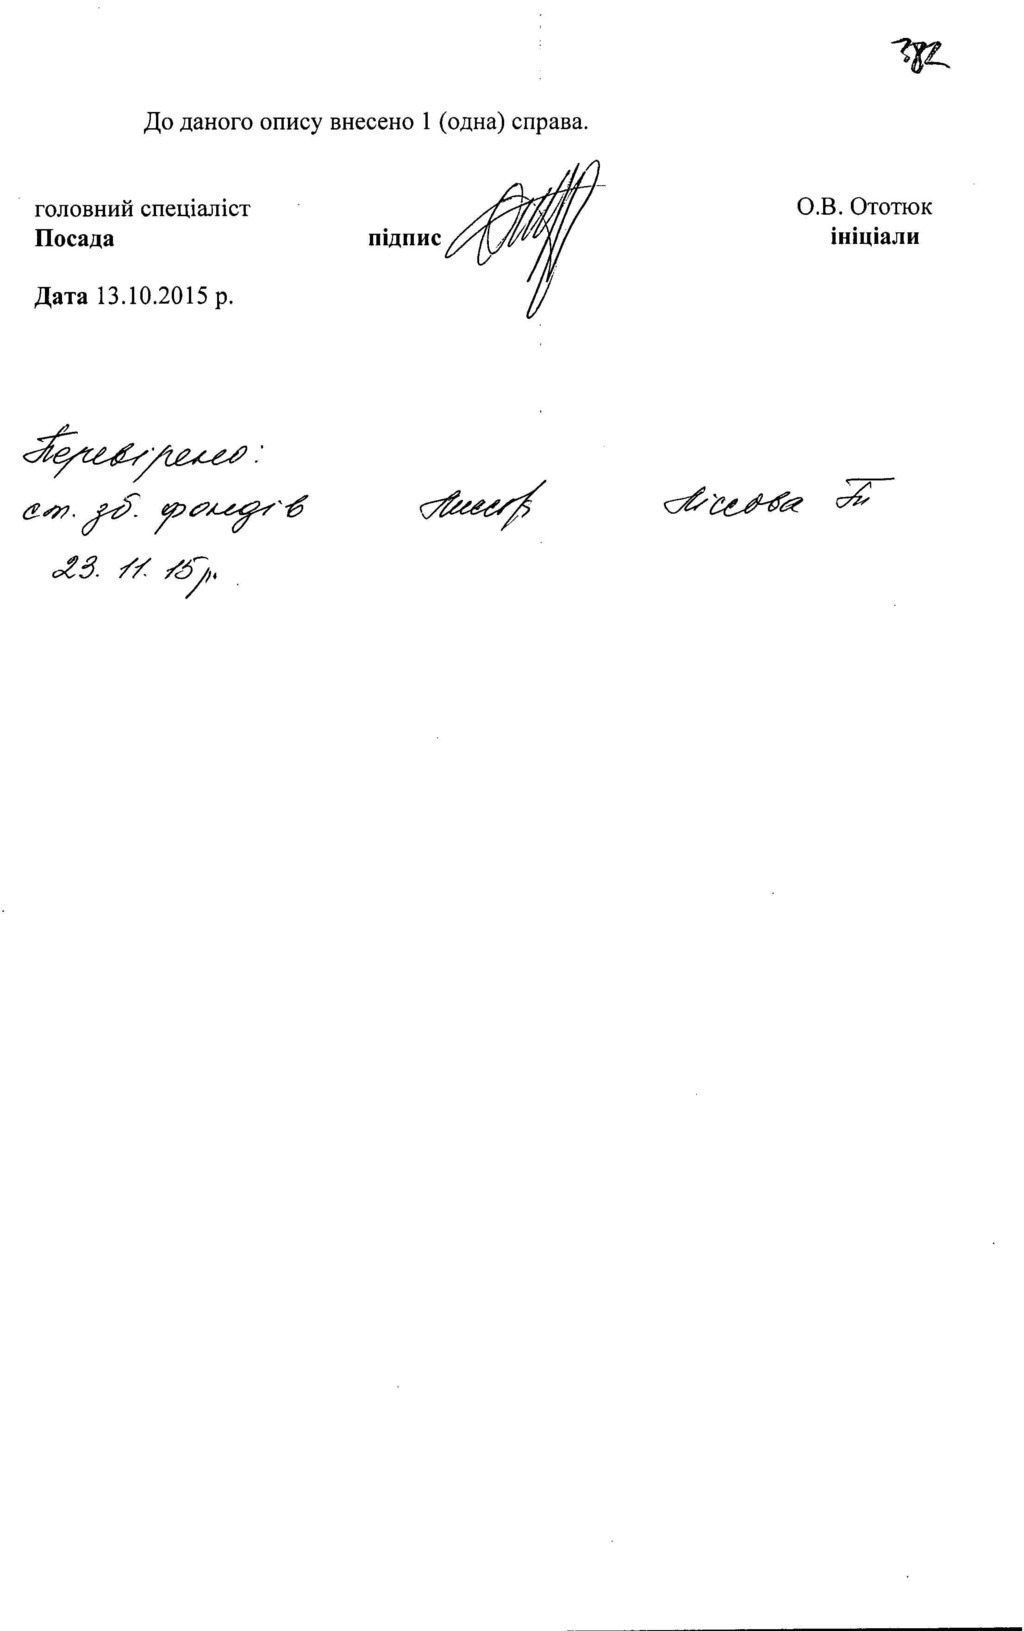 382
До даного опису внесено 1 (одна) справа.
головний спеціаліст О.В. Ототюк
Посада підпис ініціали
Дата 13.10.2015 р.
Перевірено:
ст. зб. фондів
23. 11. 15р.